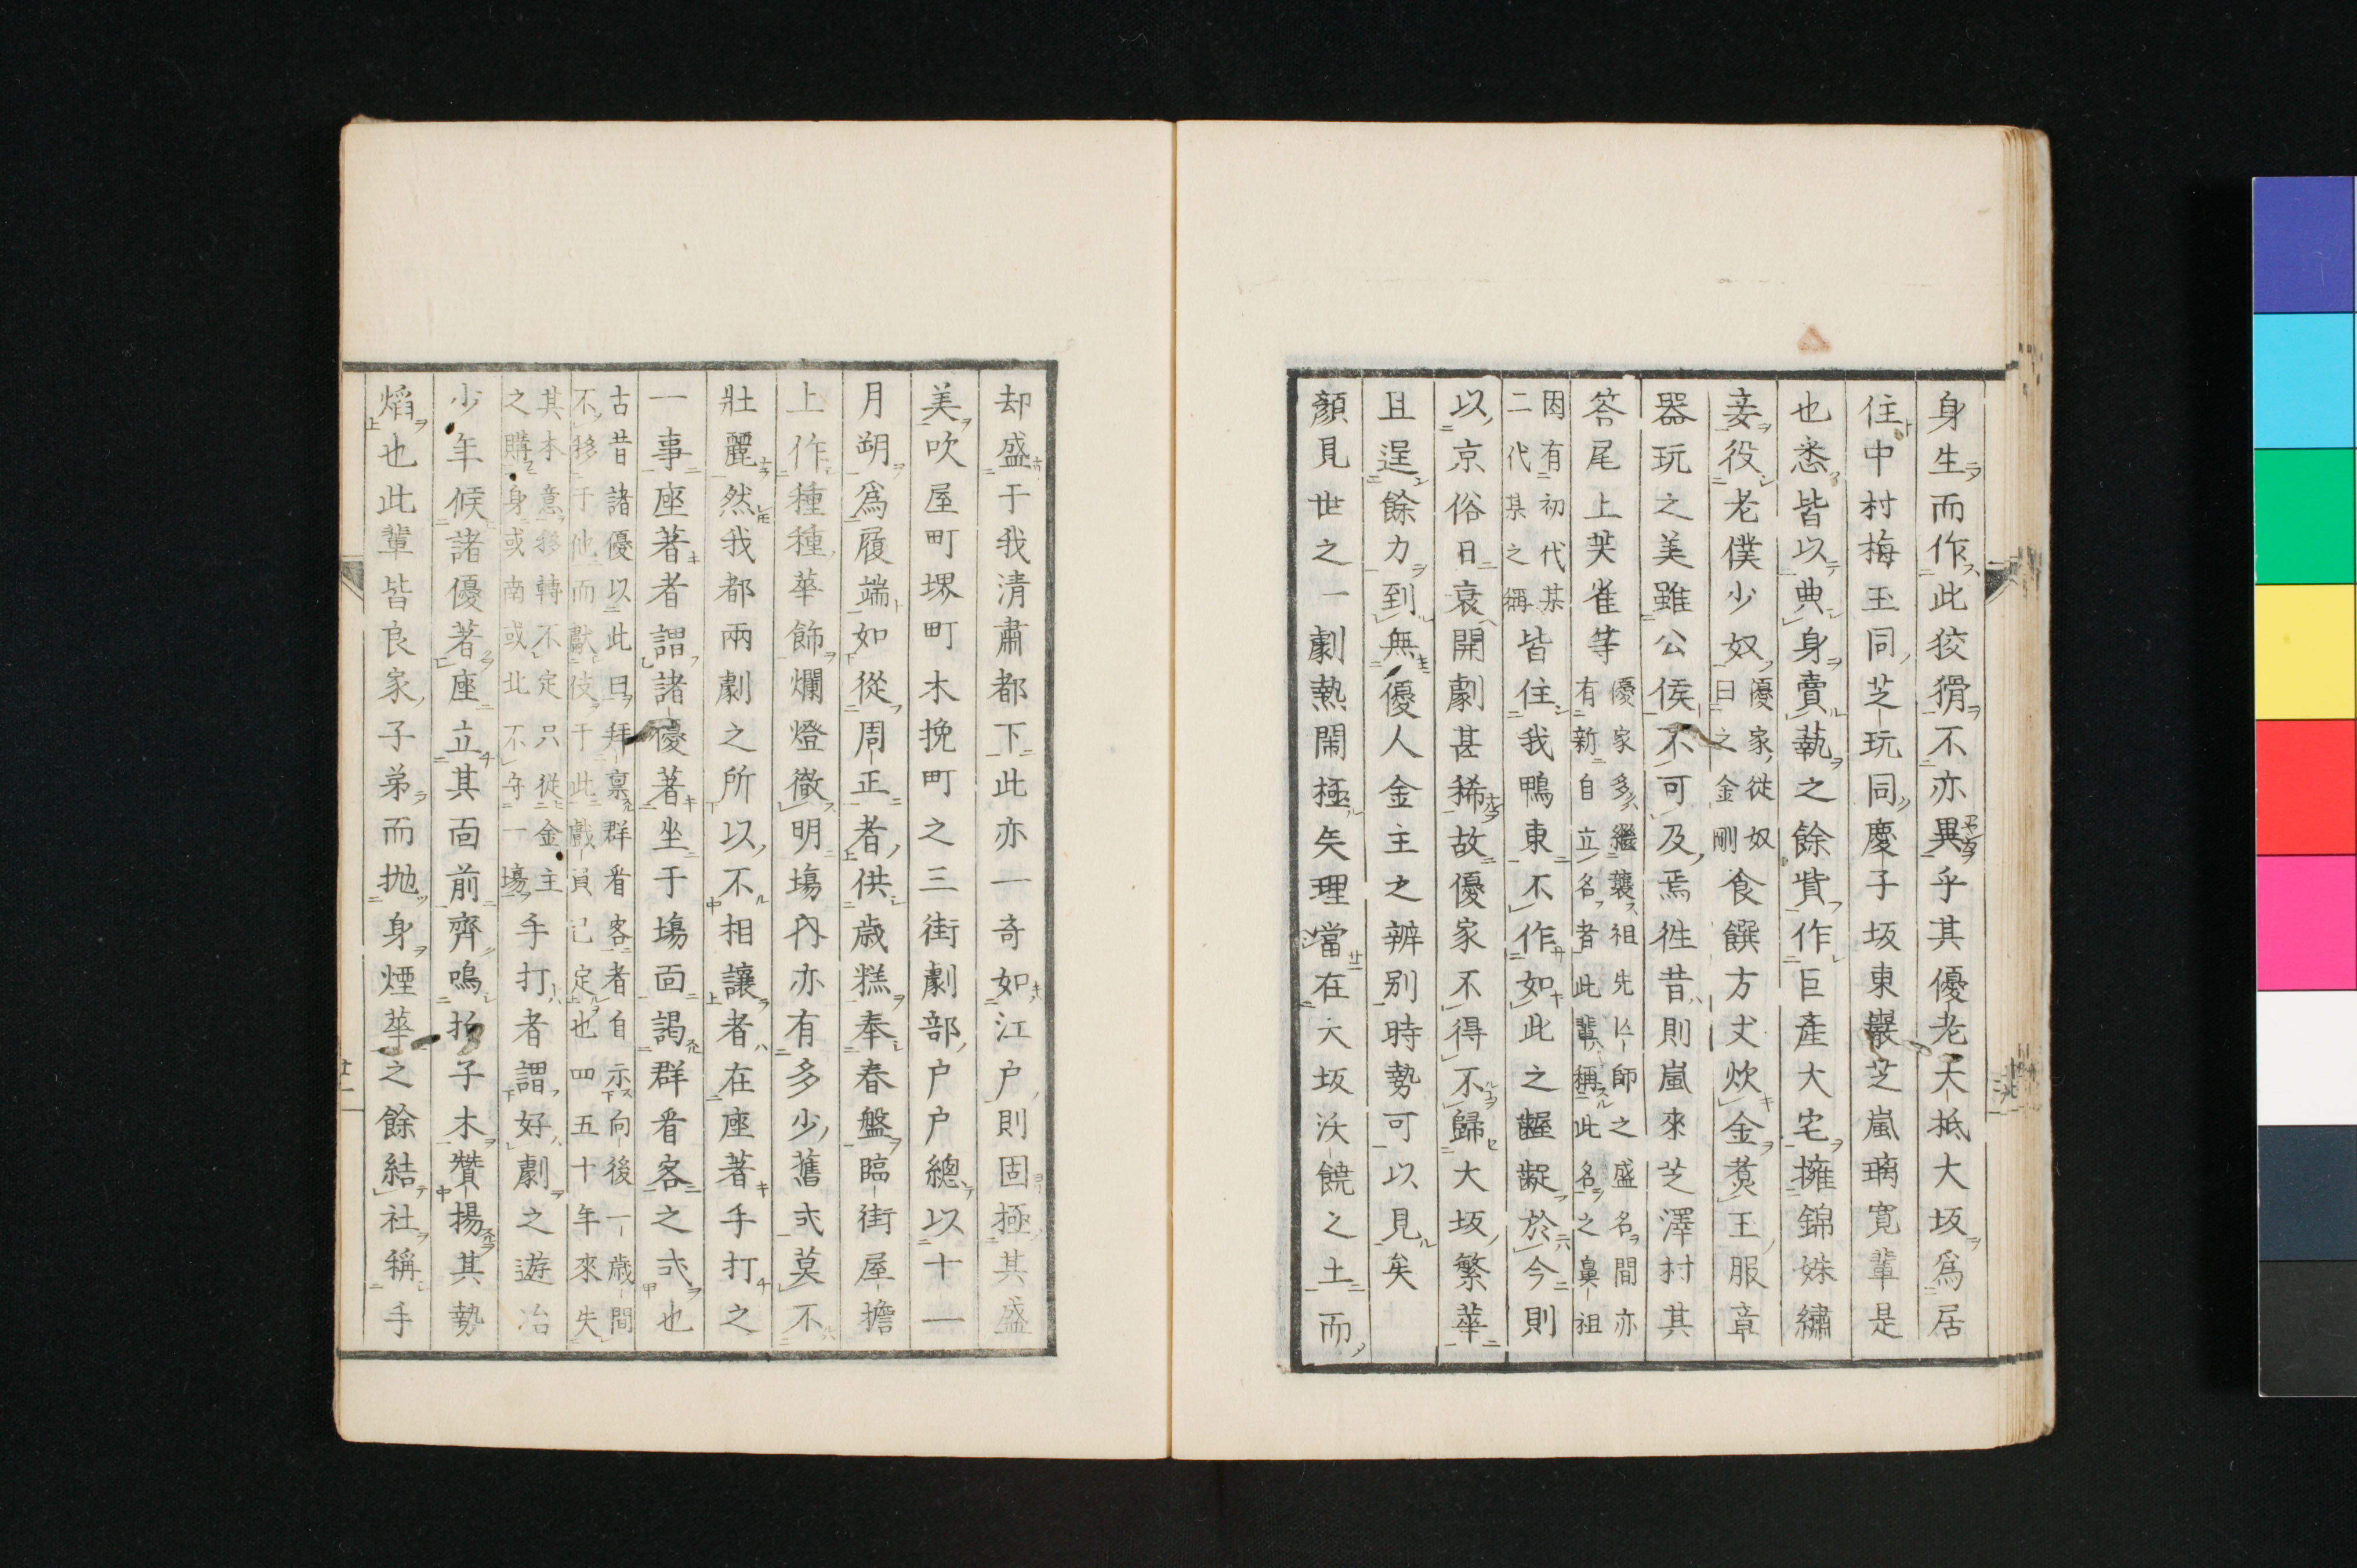 身生而作此狡猾不亦異乎其優老大抵大坂爲居
住中村梅玉同芝玩同慶子坂東巖芝嵐璃寛輩是
也悉皆以典身賣執之餘貲作巨產大宅擁錦姝繡
妾役老僕少奴優家從奴曰之金剛食饌方丈炊金爇玉服章
器玩之美雖公侯不可及焉徃昔則嵐來芝澤村其
答尾上芙雀等優家多繼襲祖先以師之盛名間亦有新自立名者此輩稱此名之鼻祖
因有初代某二代某之稱皆住我鴨東不作如此之齷齪於今則
以京俗日衰開劇甚稀故優家不得不歸大坂繁華
且逞餘力到無優人金主之辨別時勢可以見矣
顏見世之一劇熱鬧極矣理當在大坂沃饒之土而
却盛于我清肅都下此亦一奇如江户則固極其盛
美吹屋町堺町木挽町之三街劇部户户總以十一
月朔爲履端如從周正者供歳糕奉春盤臨街屋擔
上作種種華飾爛燈徹明塲內亦有多少舊式莫不
壯麗然我都兩劇之所以不相讓者在座著手打之
一事座著者謂諸優著坐于塲面謁群看客之式也
古昔諸優以此日拜稟群看客者自示向後一歳間不移于他而獻伎于此戲員已定也四五十年來失
其本意移轉不定只從金主之購身或南或北不守一塲手打者謂好劇之遊冶
少年候諸優著座立其面前齊鳴拍子木贊揚其勢
焰也此輩皆良家子弟而抛身煙華之餘結社稱手
廿一